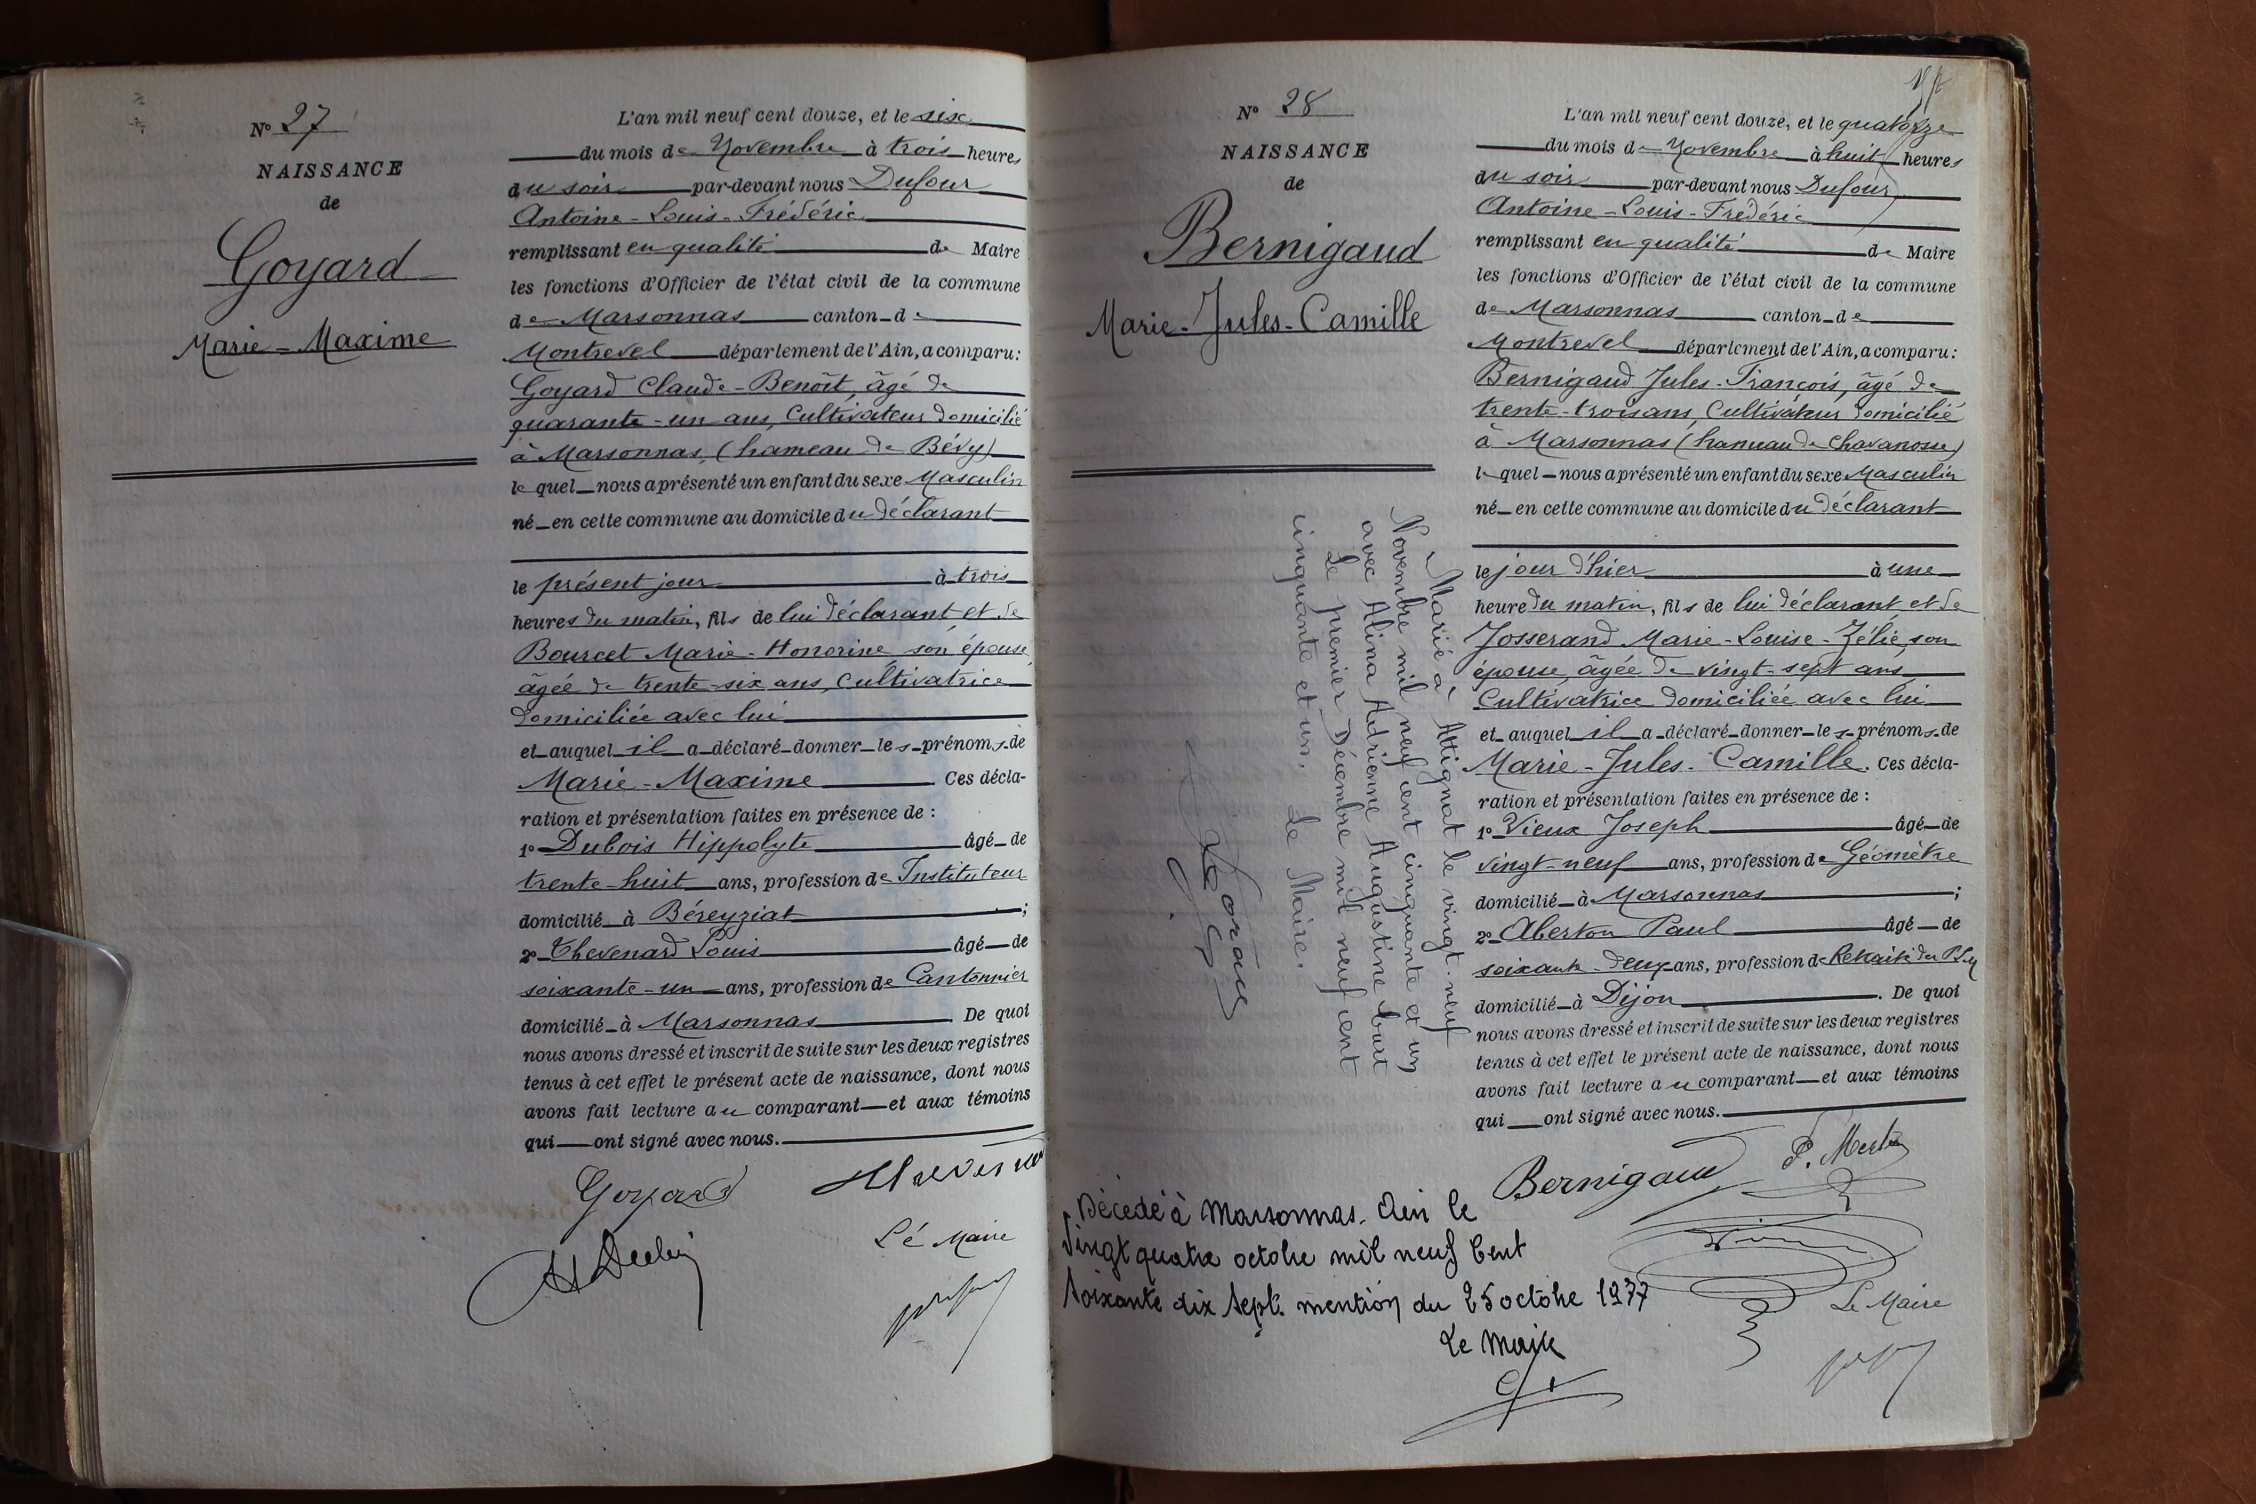 N° 27
NAISSANCE
de
Goyard
Marie-Maxime
L'an mil neuf cent douze, et le six
du mois de Novembre à trois heures
du soir par-devant nous Dufour
Antoine-Louis-Frédéric
remplissant en qualité de Maire
les fonctions d'Officier de l'état civil de la commune
de Marsonnas canton de
Montrevel département de l'Ain, a comparu :
Goyard Claude-Benoît, âgé de
quarante-un ans, Cultivateur domicilié
à Marsonnas, (hameau de Bévy)
le quel nous a présenté un enfant du sexe Masculin
né en cette commune au domicile du déclarant
le présent jour à trois
heures du matin, fils de lui déclarant et de
Bourcet Marie-Honorine son épouse,
âgée de trente-six ans, Cultivatrice
domiciliée avec lui
et auquel il a déclaré donner les prénoms de
Marie-Maxime Ces décla-
ration et présentation faites en présence de :
1° Dubois Hippolyte âgé de
trente-huit ans, profession de Instituteur
domicilié à Béreyziat ;
2° Thevenard Louis âgé de
soixante-un ans, profession de Cantonnier
domicilié à Marsonnas De quoi
nous avons dressé et inscrit de suite sur les deux registres
tenus à cet effet le présent acte de naissance, dont nous
avons fait lecture au comparant et aux témoins
qui ont signé avec nous.
Goyard
Le Maire
N° 28
NAISSANCE
de
Bernigaud
Marie-Jules-Camille
Marié à Attignat le vingt-neuf
Novembre mil neuf cent cinquante et un
avec Alina Adrienne Augustine Curt
Le premier Décembre mil neuf cent
cinquante et un. Le Maire.
Décédé à Marsonnas. Ain le
Vingt quatre octobre mil neuf Cent
Soixante dix Sept. mention du 25 octobre 1977
Le Maire
L'an mil neuf cent douze, et le quatorze
du mois de Novembre à huit heures
du soir par-devant nous Dufour
Antoine-Louis-Frédéric
remplissant en qualité de Maire
les fonctions d'Officier de l'état civil de la commune
de Marsonnas canton de
Montrevel département de l'Ain, a comparu :
Bernigaud Jules-François, âgé de
trente-trois ans, Cultivateur domicilié
à Marsonnas (hameau de Chavanosse)
le quel nous a présenté un enfant du sexe Masculin
né en cette commune au domicile du déclarant
le jour d'hier à une
heure du matin, fils de lui déclarant et de
Josserand Marie-Louise-Zélie, son
épouse, âgée de vingt-sept ans
Cultivatrice domiciliée avec lui
et auquel il a déclaré donner les prénoms de
Marie-Jules-Camille. Ces décla-
ration et présentation faites en présence de :
1° Vieux Joseph âgé de
vingt-neuf ans, profession de Géomètre
domicilié à Marsonnas ;
2° Aberton Paul âgé de
soixante-deux ans, profession de Retraité du PLM
domicilié à Dijon. De quoi
nous avons dressé et inscrit de suite sur les deux registres
tenus à cet effet le présent acte de naissance, dont nous
avons fait lecture au comparant et aux témoins
qui ont signé avec nous.
Bernigaud
Le Maire